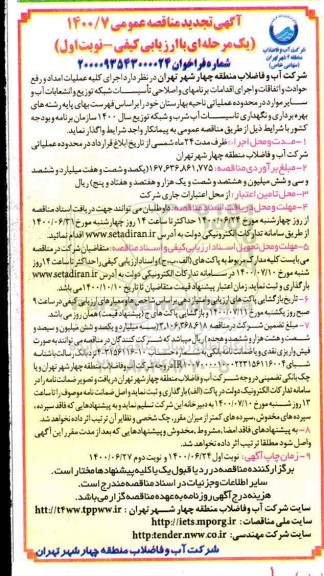 آگهی تجدید مناقصه عمومی ۱۴۰۰/۷
(یک مرحله‌ای با ارزیابی کیفی – نوبت اول)
شماره فراخوان ۲۰۰۰۰۹۵۴۳۰۰۰۰۲۴
شرکت آب و فاضلاب منطقه چهار شهر تهران در نظر دارد اجرای کلیه عملیات امداد و رفع
حوادث و اتفاقات و اجرای اقدامات برنامه‌ای و اصلاحی تأسیسات شبکه توزیع و انشعابات آب و
سایر موارد در محدوده عملیاتی ناحیه بهارستان خود را بر اساس فهرست بهای پایه رشته های
بهره برداری و نگهداری تاسیسات آب شرب و شبکه توزیع سال ۱۴۰۰ سازمان برنامه و بودجه
کشور با شرایط ذیل از طریق مناقصه عمومی به پیمانکار واجد شرایط واگذار نماید.
۱– مدت و محل اجرا: ظرف مدت ۲۴ ماه شمسی از تاریخ ابلاغ قرارداد در محدوده عملیاتی
شرکت آب و فاضلاب منطقه چهار شهر تهران
۲– مبلغ برآوردی مناقصه: ۱۶۷,۶۳۶,۸۶۱,۷۷۵ (یکصد و شصت و هفت میلیارد و ششصد
و سی و شش میلیون و هشتصد و شصت و یک هزار و هفتصد و هفتاد و پنج) ریال
۳– محل تامین اعتبار: از محل اعتبارات جاری شرکت
۴– مهلت و محل دریافت اسناد مناقصه: داوطلبان می توانند جهت دریافت اسناد مناقصه
از روز چهارشنبه مورخ ۱۴۰۰/۰۶/۲۴ حداکثر تا ساعت ۱۴ روز چهارشنبه مورخ ۱۴۰۰/۰۶/۳۱
از طریق سامانه تدارکات الکترونیکی دولت به آدرس www.setadiran.ir اقدام نمایند.
۵– مهلت و محل تحویل اسناد ارزیابی کیفی و اسناد مناقصه: متقاضیان شرکت در مناقصه
می بایست کلیه مدارک مربوط به پاکت های (الف، ب، ج) و اسناد ارزیابی کیفی را حداکثر تا ساعت ۱۴ روز
شنبه مورخ ۱۴۰۰/۰۷/۱۰ در سامانه تدارکات الکترونیکی دولت به آدرس www.setadiran.ir
بارگذاری و ثبت نماید. زمان اعتبار پیشنهاد قیمت متقاضیان تا تاریخ ۱۴۰۰/۱۰/۱۰ می باشد.
۶– تاریخ بازگشایی پاکت های ارزیابی و امتیازدهی بر اساس شاخص ها و معیارهای ارزیابی کیفی در ساعت ۹
صبح روز یکشنبه مورخ ۱۴۰۰/۰۷/۱۱ و بازگشایی پاکت های ج (پیشنهاد قیمت) همان روز می باشد.
۷– مبلغ تضمین شرکت در مناقصه
شصت و هشت هزار و ششصد و هجده) ریال میباشد که شرکت کنندگان در مناقصه می توانند به صورت
فیش واریزی نقدی و یا ضمانت نامه بانکی
بانکی تضمینی در وجه شرکت آب و فاضلاب منطقه چهار شهر تهران دریافت و تصویر ضمانت نامه را در
سامانه تدارکات الکترونیک دولت در پاکت (الف) بارگذاری و ثبت نماید و اصل ضمانت نامه موصوف را تا ساعت
۱۳ روز شنبه مورخ ۱۴۰۰/۰۷/۱۰ به دبیرخانه این شرکت تسلیم نماید و به پیشنهادهایی که فاقد سپرده،
سپرده های مخدوش، سپرده های کمتر از میزان مقرر، چک شخصی و نظایر آن ترتیب اثر داده نخواهد شد.
۸– به پیشنهادهای فاقد امضا، مشروط، مخدوش و پیشنهادهایی که بعد از مدت مقرر این آگهی
واصل شود مطلقا ترتیب اثر داده نخواهد شد.
۹– زمان چاپ آگهی: نوبت اول ۱۴۰۰/۰۶/۲۴ و نوبت دوم ۱۴۰۰/۰۶/۲۷
برگزار کننده مناقصه در رد یا قبول یک یا کلیه پیشنهادها مختار است.
سایر اطلاعات و جزئیات در اسناد مناقصه مندرج است.
هزینه درج آگهی روزنامه به عهده مناقصه گزار می باشد.
سایت شرکت آب و فاضلاب منطقه چهار شهر تهران: htt://t4ww.tppww.ir
سایت ملی مناقصات: http://iets.mporg.ir
سایت شرکت مهندسی: http:tender.nww.co.ir
شرکت آب و فاضلاب منطقه چهار شهر تهران